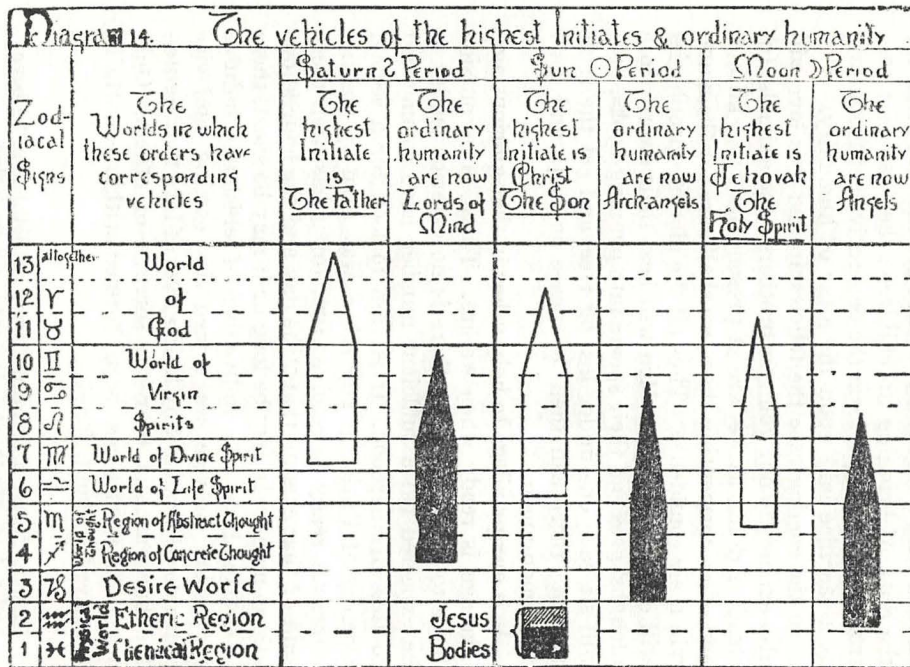 Diagram 14. The vehicles of the highest Initiates & ordinary humanity
Saturn ♄ Period
Sun ☉ Period
Moon ☽ Period
Zod-
iacal
Signs
The
Worlds in which
these orders have
corresponding
vehicles
The
highest
Initiate
is
The Father
The
ordinary
humanity
are now
Lords of
Mind
The
highest
Initiate is
Christ
The Son
The
ordinary
humanity
are now
Arch-angels
The
highest
Initiate is
Jehovah
The
Holy Spirit
The
ordinary
humanity
are now
Angels
13 altogether World
12 ♈ of
11 ♉ God
10 ♊ World of
9 ♋ Virgin
8 ♌ Spirits
7 ♍ World of Divine Spirit
6 ♎ World of Life Spirit
World of
Thought
5 ♏ Region of Abstract Thought
4 ♐ Region of Concrete Thought
3 ♑ Desire World
Physical
World
2 ♒ Etheric Region
1 ♓ Chemical Region
Jesus
Bodies